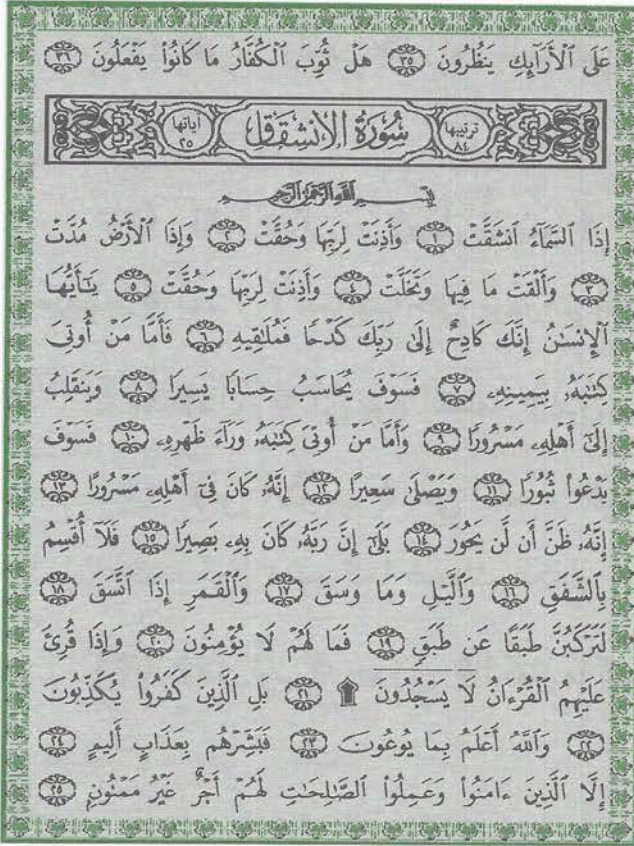 عَلَى ٱلْأَرَآئِكِ يَنظُرُونَ ٣٥ هَلْ ثُوِّبَ ٱلْكُفَّارُ مَا كَانُوا۟ يَفْعَلُونَ ٣٦
ترتيبها ٨٤ سُورَةُ الإنشقاق آياتها ٢٥
بِسْمِ ٱللَّهِ ٱلرَّحْمَٰنِ ٱلرَّحِيمِ
إِذَا ٱلسَّمَآءُ ٱنشَقَّتْ ١ وَأَذِنَتْ لِرَبِّهَا وَحُقَّتْ ٢ وَإِذَا ٱلْأَرْضُ مُدَّتْ
٣ وَأَلْقَتْ مَا فِيهَا وَتَخَلَّتْ ٤ وَأَذِنَتْ لِرَبِّهَا وَحُقَّتْ ٥ يَٰٓأَيُّهَا
ٱلْإِنسَٰنُ إِنَّكَ كَادِحٌ إِلَىٰ رَبِّكَ كَدْحًا فَمُلَٰقِيهِ ٦ فَأَمَّا مَنْ أُوتِىَ
كِتَٰبَهُۥ بِيَمِينِهِۦ ٧ فَسَوْفَ يُحَاسَبُ حِسَابًا يَسِيرًا ٨ وَيَنقَلِبُ
إِلَىٰٓ أَهْلِهِۦ مَسْرُورًا ٩ وَأَمَّا مَنْ أُوتِىَ كِتَٰبَهُۥ وَرَآءَ ظَهْرِهِۦ ١٠ فَسَوْفَ
يَدْعُوا۟ ثُبُورًا ١١ وَيَصْلَىٰ سَعِيرًا ١٢ إِنَّهُۥ كَانَ فِىٓ أَهْلِهِۦ مَسْرُورًا ١٣
إِنَّهُۥ ظَنَّ أَن لَّن يَحُورَ ١٤ بَلَىٰٓ إِنَّ رَبَّهُۥ كَانَ بِهِۦ بَصِيرًا ١٥ فَلَآ أُقْسِمُ
بِٱلشَّفَقِ ١٦ وَٱلَّيْلِ وَمَا وَسَقَ ١٧ وَٱلْقَمَرِ إِذَا ٱتَّسَقَ ١٨
لَتَرْكَبُنَّ طَبَقًا عَن طَبَقٍ ١٩ فَمَا لَهُمْ لَا يُؤْمِنُونَ ٢٠ وَإِذَا قُرِئَ
عَلَيْهِمُ ٱلْقُرْءَانُ لَا يَسْجُدُونَ ۩ ٢١ بَلِ ٱلَّذِينَ كَفَرُوا۟ يُكَذِّبُونَ
٢٢ وَٱللَّهُ أَعْلَمُ بِمَا يُوعُونَ ٢٣ فَبَشِّرْهُم بِعَذَابٍ أَلِيمٍ ٢٤
إِلَّا ٱلَّذِينَ ءَامَنُوا۟ وَعَمِلُوا۟ ٱلصَّٰلِحَٰتِ لَهُمْ أَجْرٌ غَيْرُ مَمْنُونٍۭ ٢٥